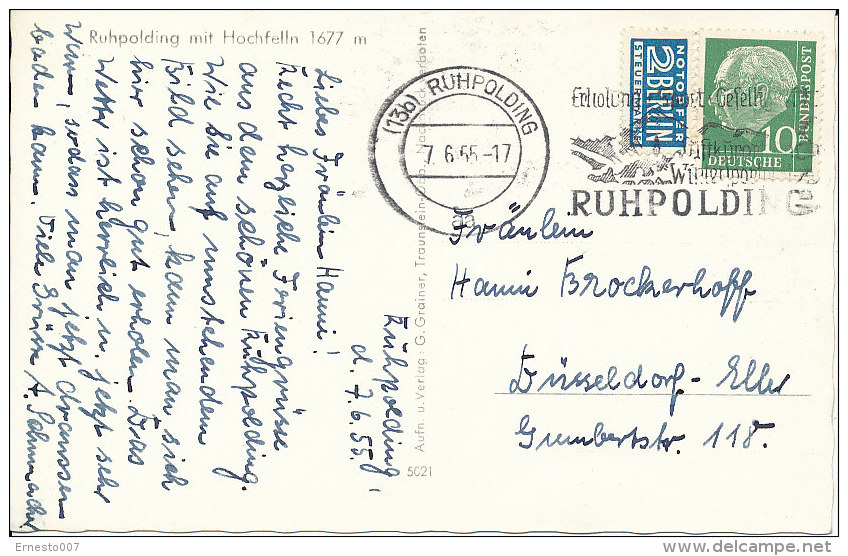 Ruhpolding mit Hochfelln 1677 m
Ruhpolding,
d. 7.6.55.
Liebes Fräulein Hanni!
Recht herzliche Feriengrüsse
aus dem schönen Ruhpolding.
Wie Sie auf umstehendem
Bild sehen, kann man sich
hier schon gut erholen. Das
Wetter ist herrlich u. jetzt sehr
warm, sodass man jetzt draussen
baden kann. Viele Grüsse A.
Aufn. u. Verlag: G. Grainer, Traunstein
verboten
5021
(13b) RUHPOLDING
7.6.55-17
aa
NOTOPFER
2 BERLIN
STEUERMARKE
DEUTSCHE
BUNDESPOST
10
Erholung Sport
Luftkurort
RUHPOLDING
Fräulein
Hanni Brockerhoff
Düsseldorf-Eller
Gumbertstr. 118.
Ernesto007
delcampe.net